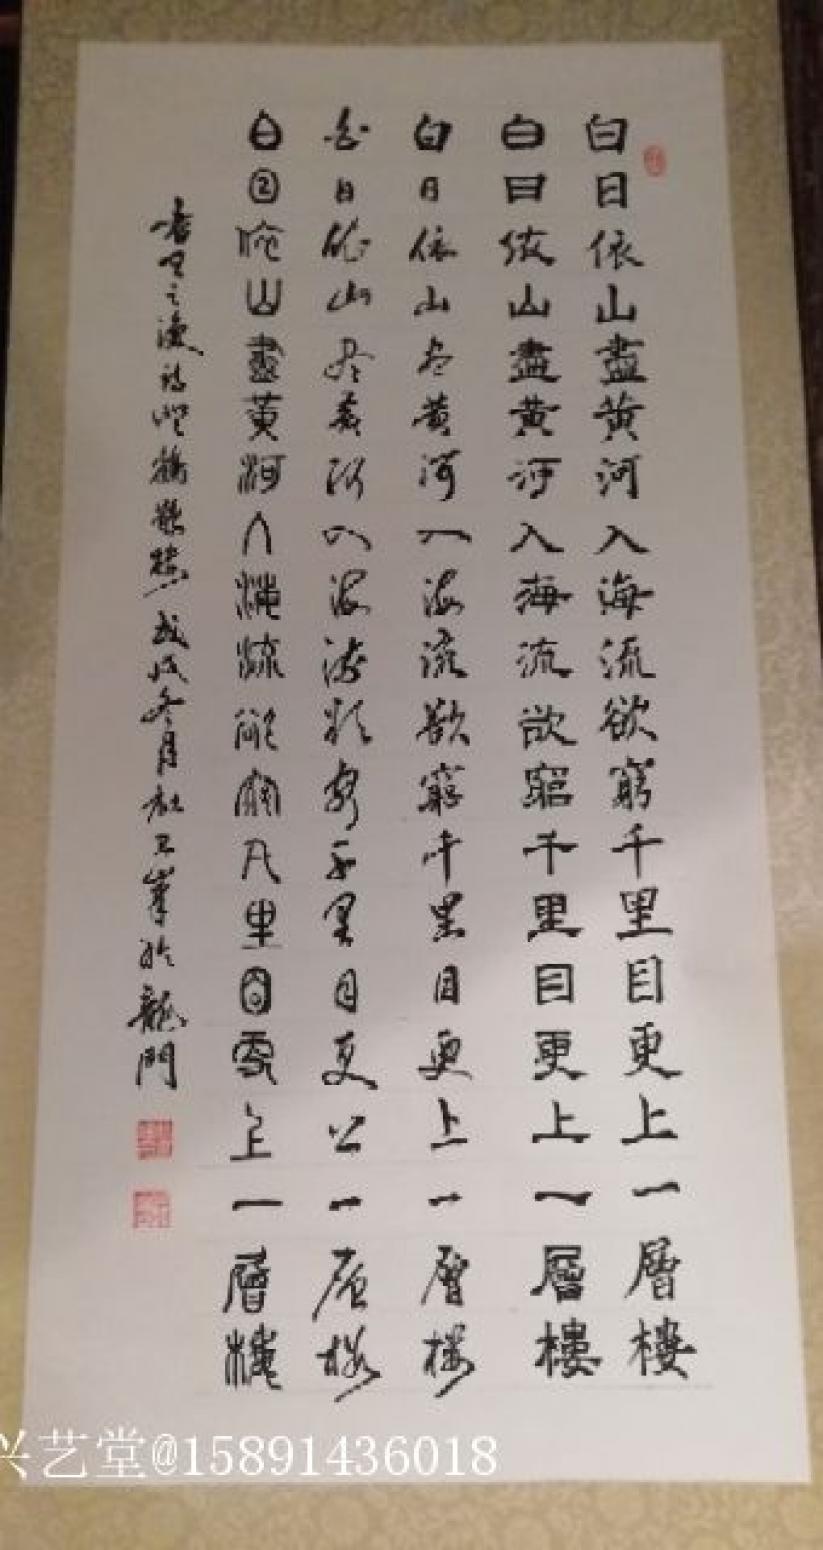 白日依山盡黄河入海流欲窮千里目更上一層樓
白日依山盡黄河入海流欲窮千里目更上一層樓
白日依山尽黄河入海流欲窮千里目更上一層楼
白日依山尽黄河入海流欲窮千里目更上一层楼
白日依山盡黄河入海流欲窮千里目更上一層樓
書王之渙詩登鶴雀楼戊戌冬月杜工峯於龍門
兴艺堂@15891436018